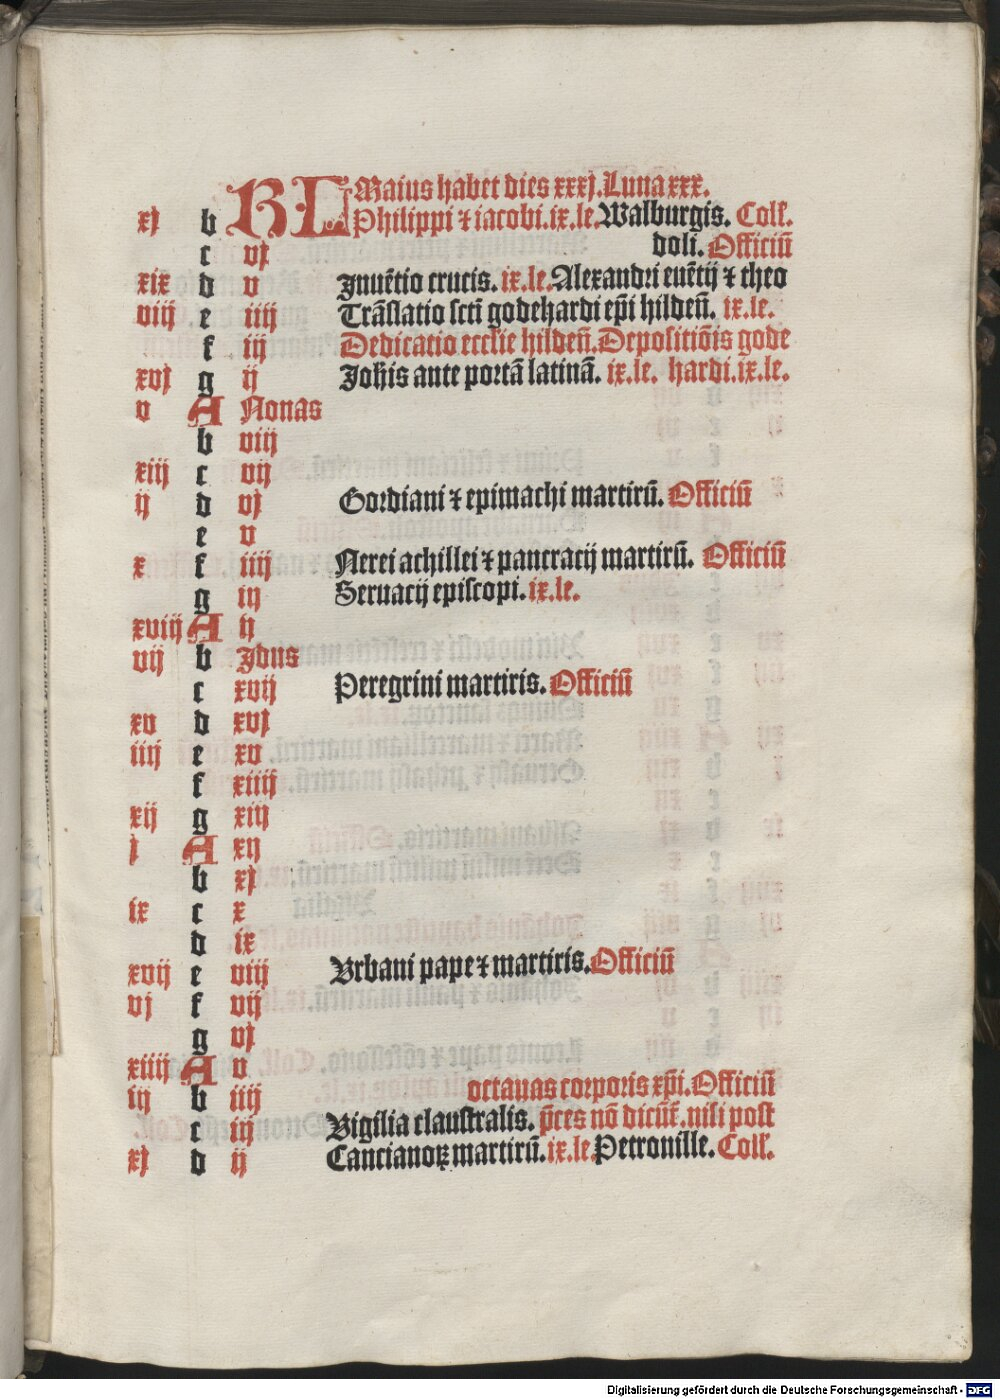 KL Maius habet dies xxxj. Luna xxx.
xj b Philippi ⁊ iacobi. ix. le. Walburgis. Coll̉.
c vj doli. Officiū
xix d v Inuētio crucis. ix. le. Alexandri euētij ⁊ theo
viij e iiij Trāslatio sctī godehardi ep̄i hildeñ. ix. le.
f iij Dedicatio ecclie hildeñ. Depositiōis gode
xvj g ij Joh̄is ante portā latinā. ix. le. hardi. ix. le.
v A Nonas
b viij
xiij c vij
ij d vj Gordiani ⁊ epimachi martirū. Officiū
e v
x f iiij Nerei achillei ⁊ pancracij martirū. Officiū
g iij Seruacij episcopi. ix. le.
xviij A ij
vij b Jdus
c xvij Peregrini martiris. Officiū
xv d xvj
iiij e xv
f xiiij
xij g xiij
j A xij
b xj
ix c x
d ix
xvij e viij Vrbani pape ⁊ martiris. Officiū
vj f vij
g vj
xiiij A v
iij b iiij octauas corporis xp̄i. Officiū
c iij Vigilia claustralis. p̄ces nō dicūt̉. nisi post
xj d ij Cancianoꝝ martirū. ix. le. Petronille. Coll̉.
Digitalisierung gefördert durch die Deutsche Forschungsgemeinschaft - DFG